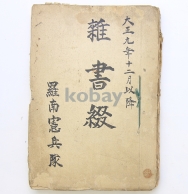 大正九年十二月以降
雑書綴
羅南憲兵隊
kobay